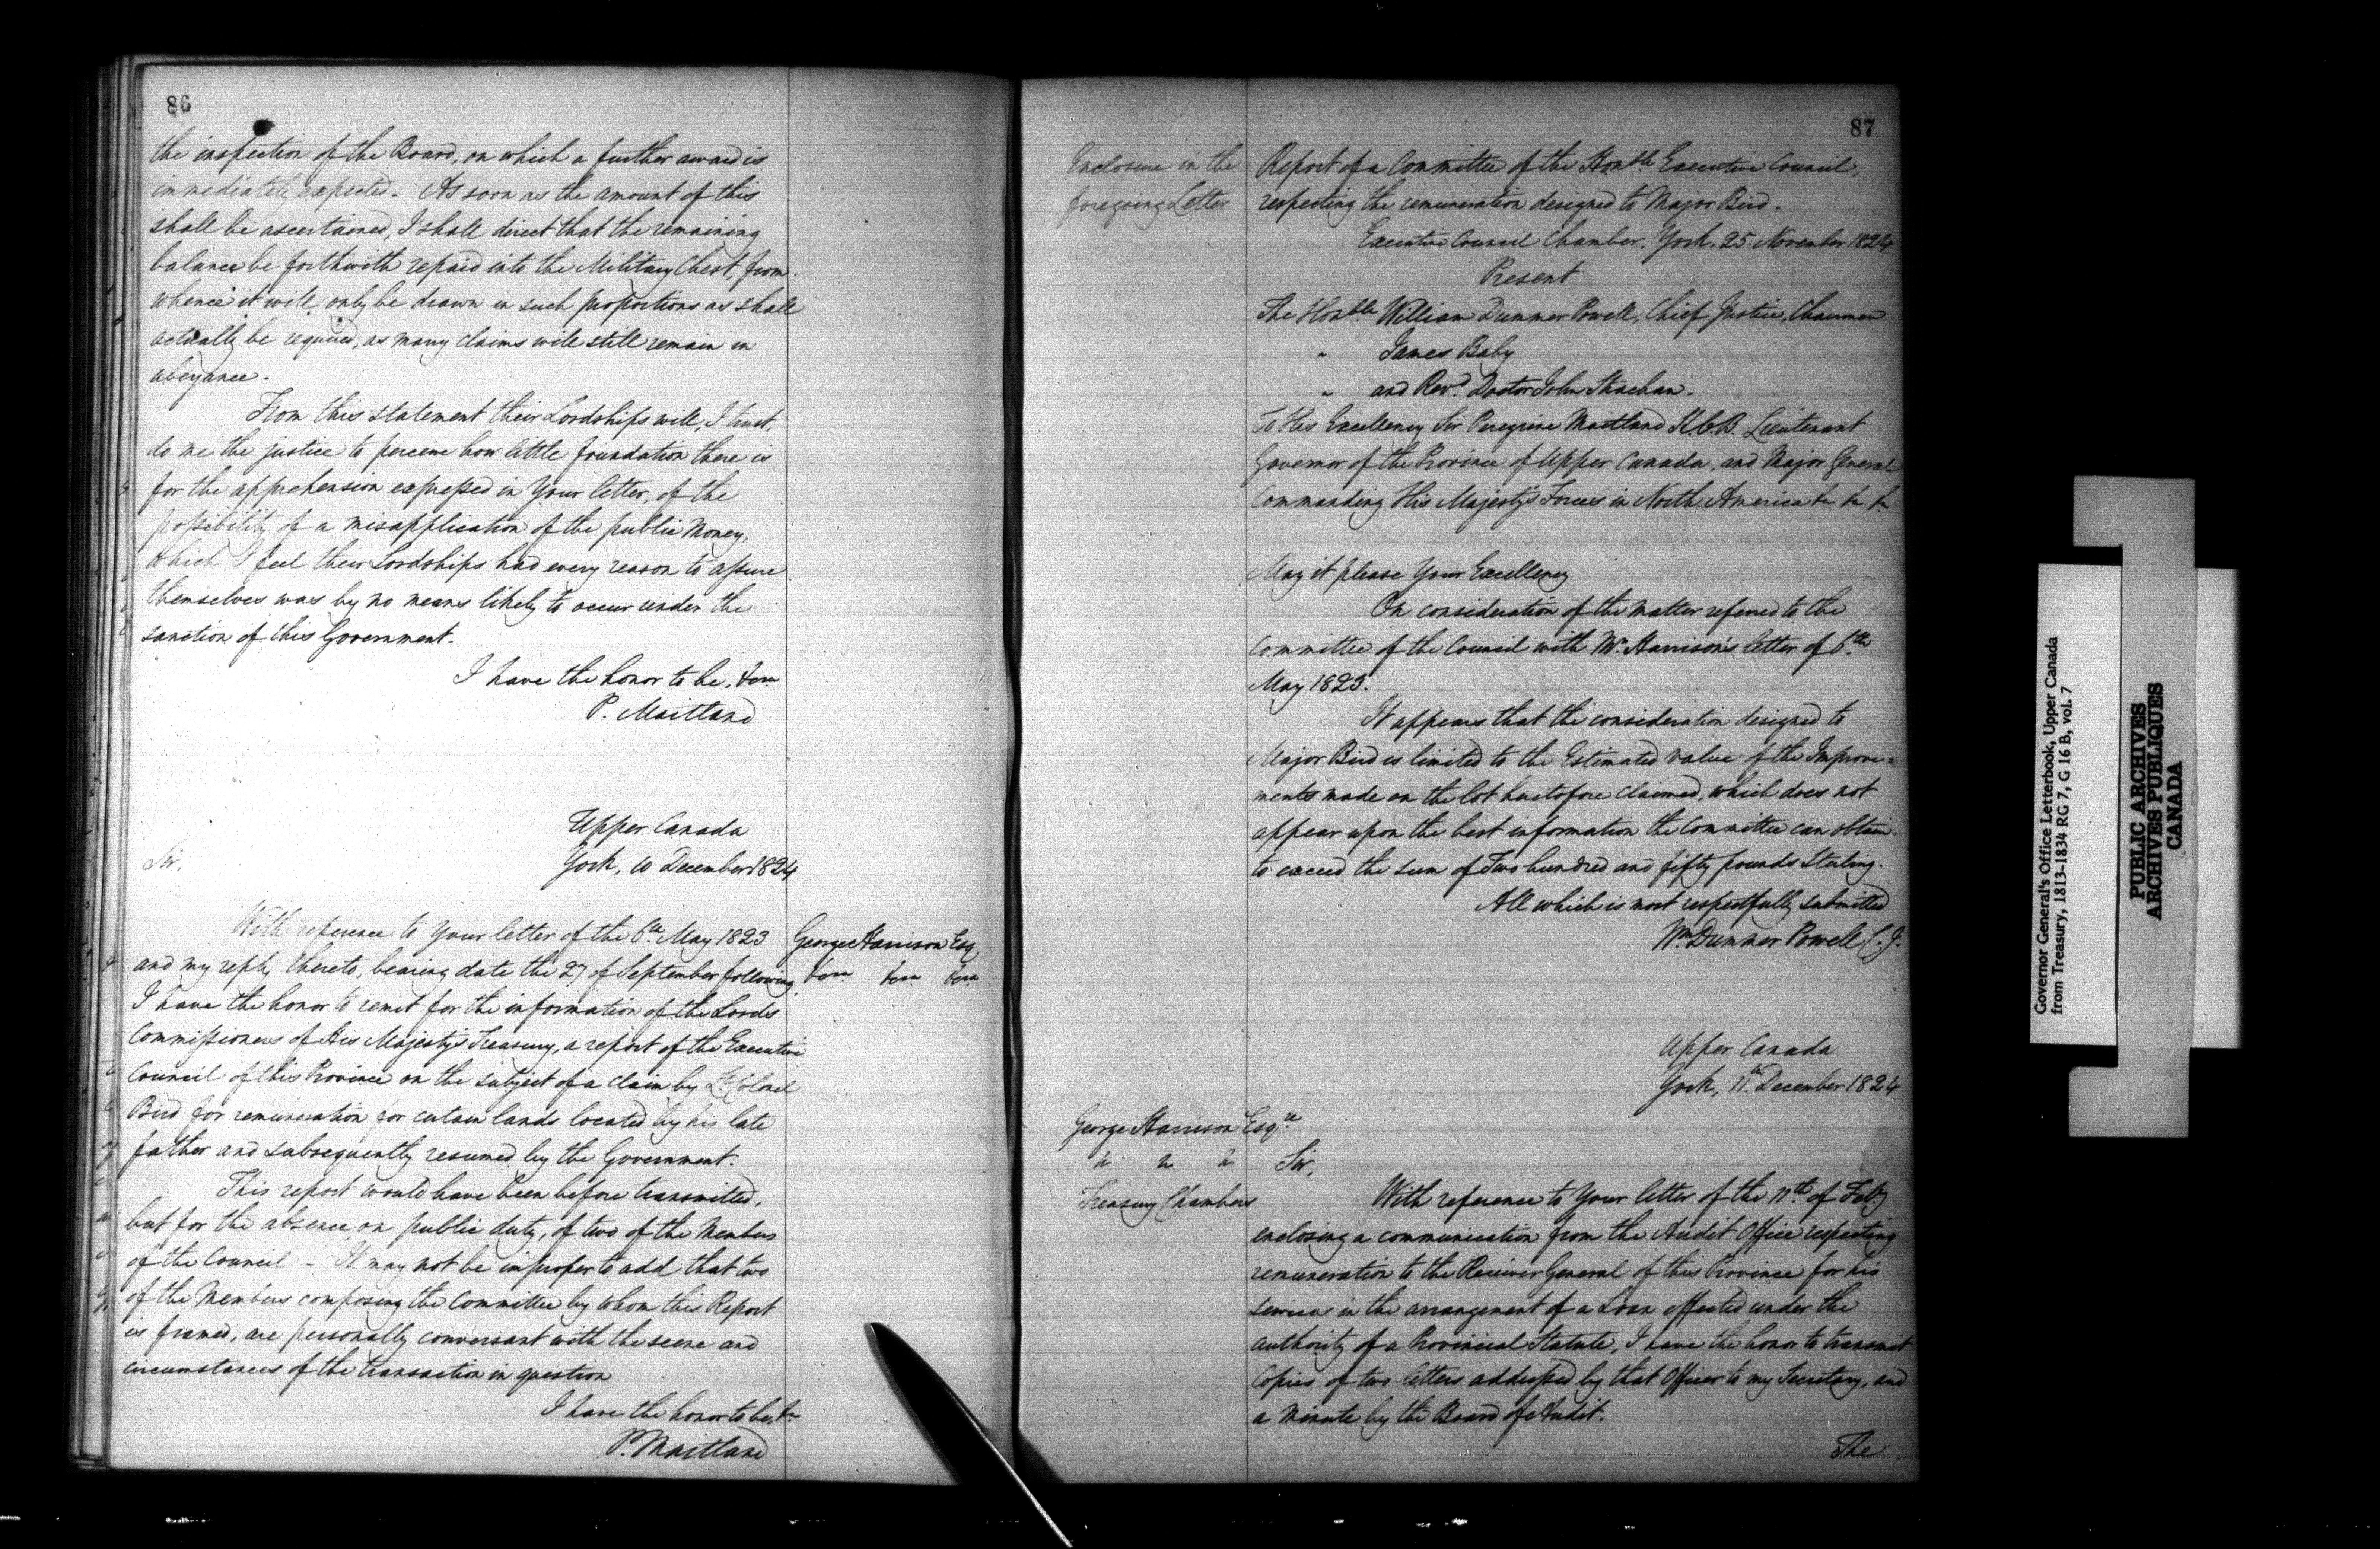 86
the inspection of the Board, on which a further award is
immediately expected - As soon as the amount of this
shall be ascertained, I shall direct that the remaining
balance be forthwith repaid into the Military Chest, from
whence it will only be drawn in such proportions as shall
actually be required, as many claims will still remain in
abeyance.
From this statement their Lordships will, I trust,
do me the justice to perceive how little foundation there is
for the apprehension expressed in Your letter, of the
possibility of a misapplication of the public Money,
which I feel their Lordships had every reason to assure
themselves was by no means likely to occur under the
sanction of this Government.
I have the honor to be, &ca
P. Maitland
Upper Canada
York, 10 December 1824
Sir,
With reference to Your letter of the 6th May 1823
and my reply thereto, bearing date the 27 of September following
I have the honor to remit for the information of the Lords
Commissioners of His Majesty's Treasury, a report of the Executive
Council of this Province on the subject of a claim by Lt Colonel
Bird for remuneration for certain lands located by his late
father and subsequently resumed by the Government.
This report would have been before transmitted,
but for the absence, on public duty, of two of the Members
of the Council - It may not be improper to add that two
of the Members composing the Committee by whom this Report
is framed, are personally conversant with the scene and
circumstances of the transaction in question.
I have the honor to be, &c
P. Maitland
George Harrison Esq
&ca &ca &ca
87
Enclosure in the
foregoing Letter
Report of a Committee of the Honble Executive Council,
respecting the remuneration designed to Major Bird.
Executive Council Chamber, York, 25 November 1824
Present
The Honble William Dummer Powell, Chief Justice, Chairman
" James Baby
" and Revd. Doctor John Strachan.
To His Excellency Sir Peregrine Maitland K.C.B. Lieutenant
Governor of the Province of Upper Canada, and Major General
Commanding His Majesty's Forces in North America &c &c &c
May it please Your Excellency
On consideration of the matter referred to the
Committee of the Council with Mr. Harrison's letter of 6th
May 1823.
It appears that the consideration designed to
Major Bird is limited to the Estimated value of the Improve=
ments made on the lot heretofore claimed, which does not
appear upon the best information the Committee can obtain
to exceed the sum of Two hundred and fifty pounds Sterling.
All which is most respectfully submitted
Wm Dummer Powell C. J.
Upper Canada
York, 11th December 1824
George Harrison Esqre
&c &c &c
Treasury Chambers
Sir,
With reference to Your letter of the 11th of Feby
enclosing a communication from the Audit Office respecting
remuneration to the Receiver General of this Province for his
services in the arrangement of a Loan effected under the
authority of a Provincial Statute, I have the honor to transmit
Copies of two letters addressed by that Officer to my Secretary, and
a Minute by the Board of Audit.
The
Governor General's Office Letterbook, Upper Canada
from Treasury, 1813-1834 RG 7, G 16 B, vol. 7
PUBLIC ARCHIVES
ARCHIVES PUBLIQUES
CANADA